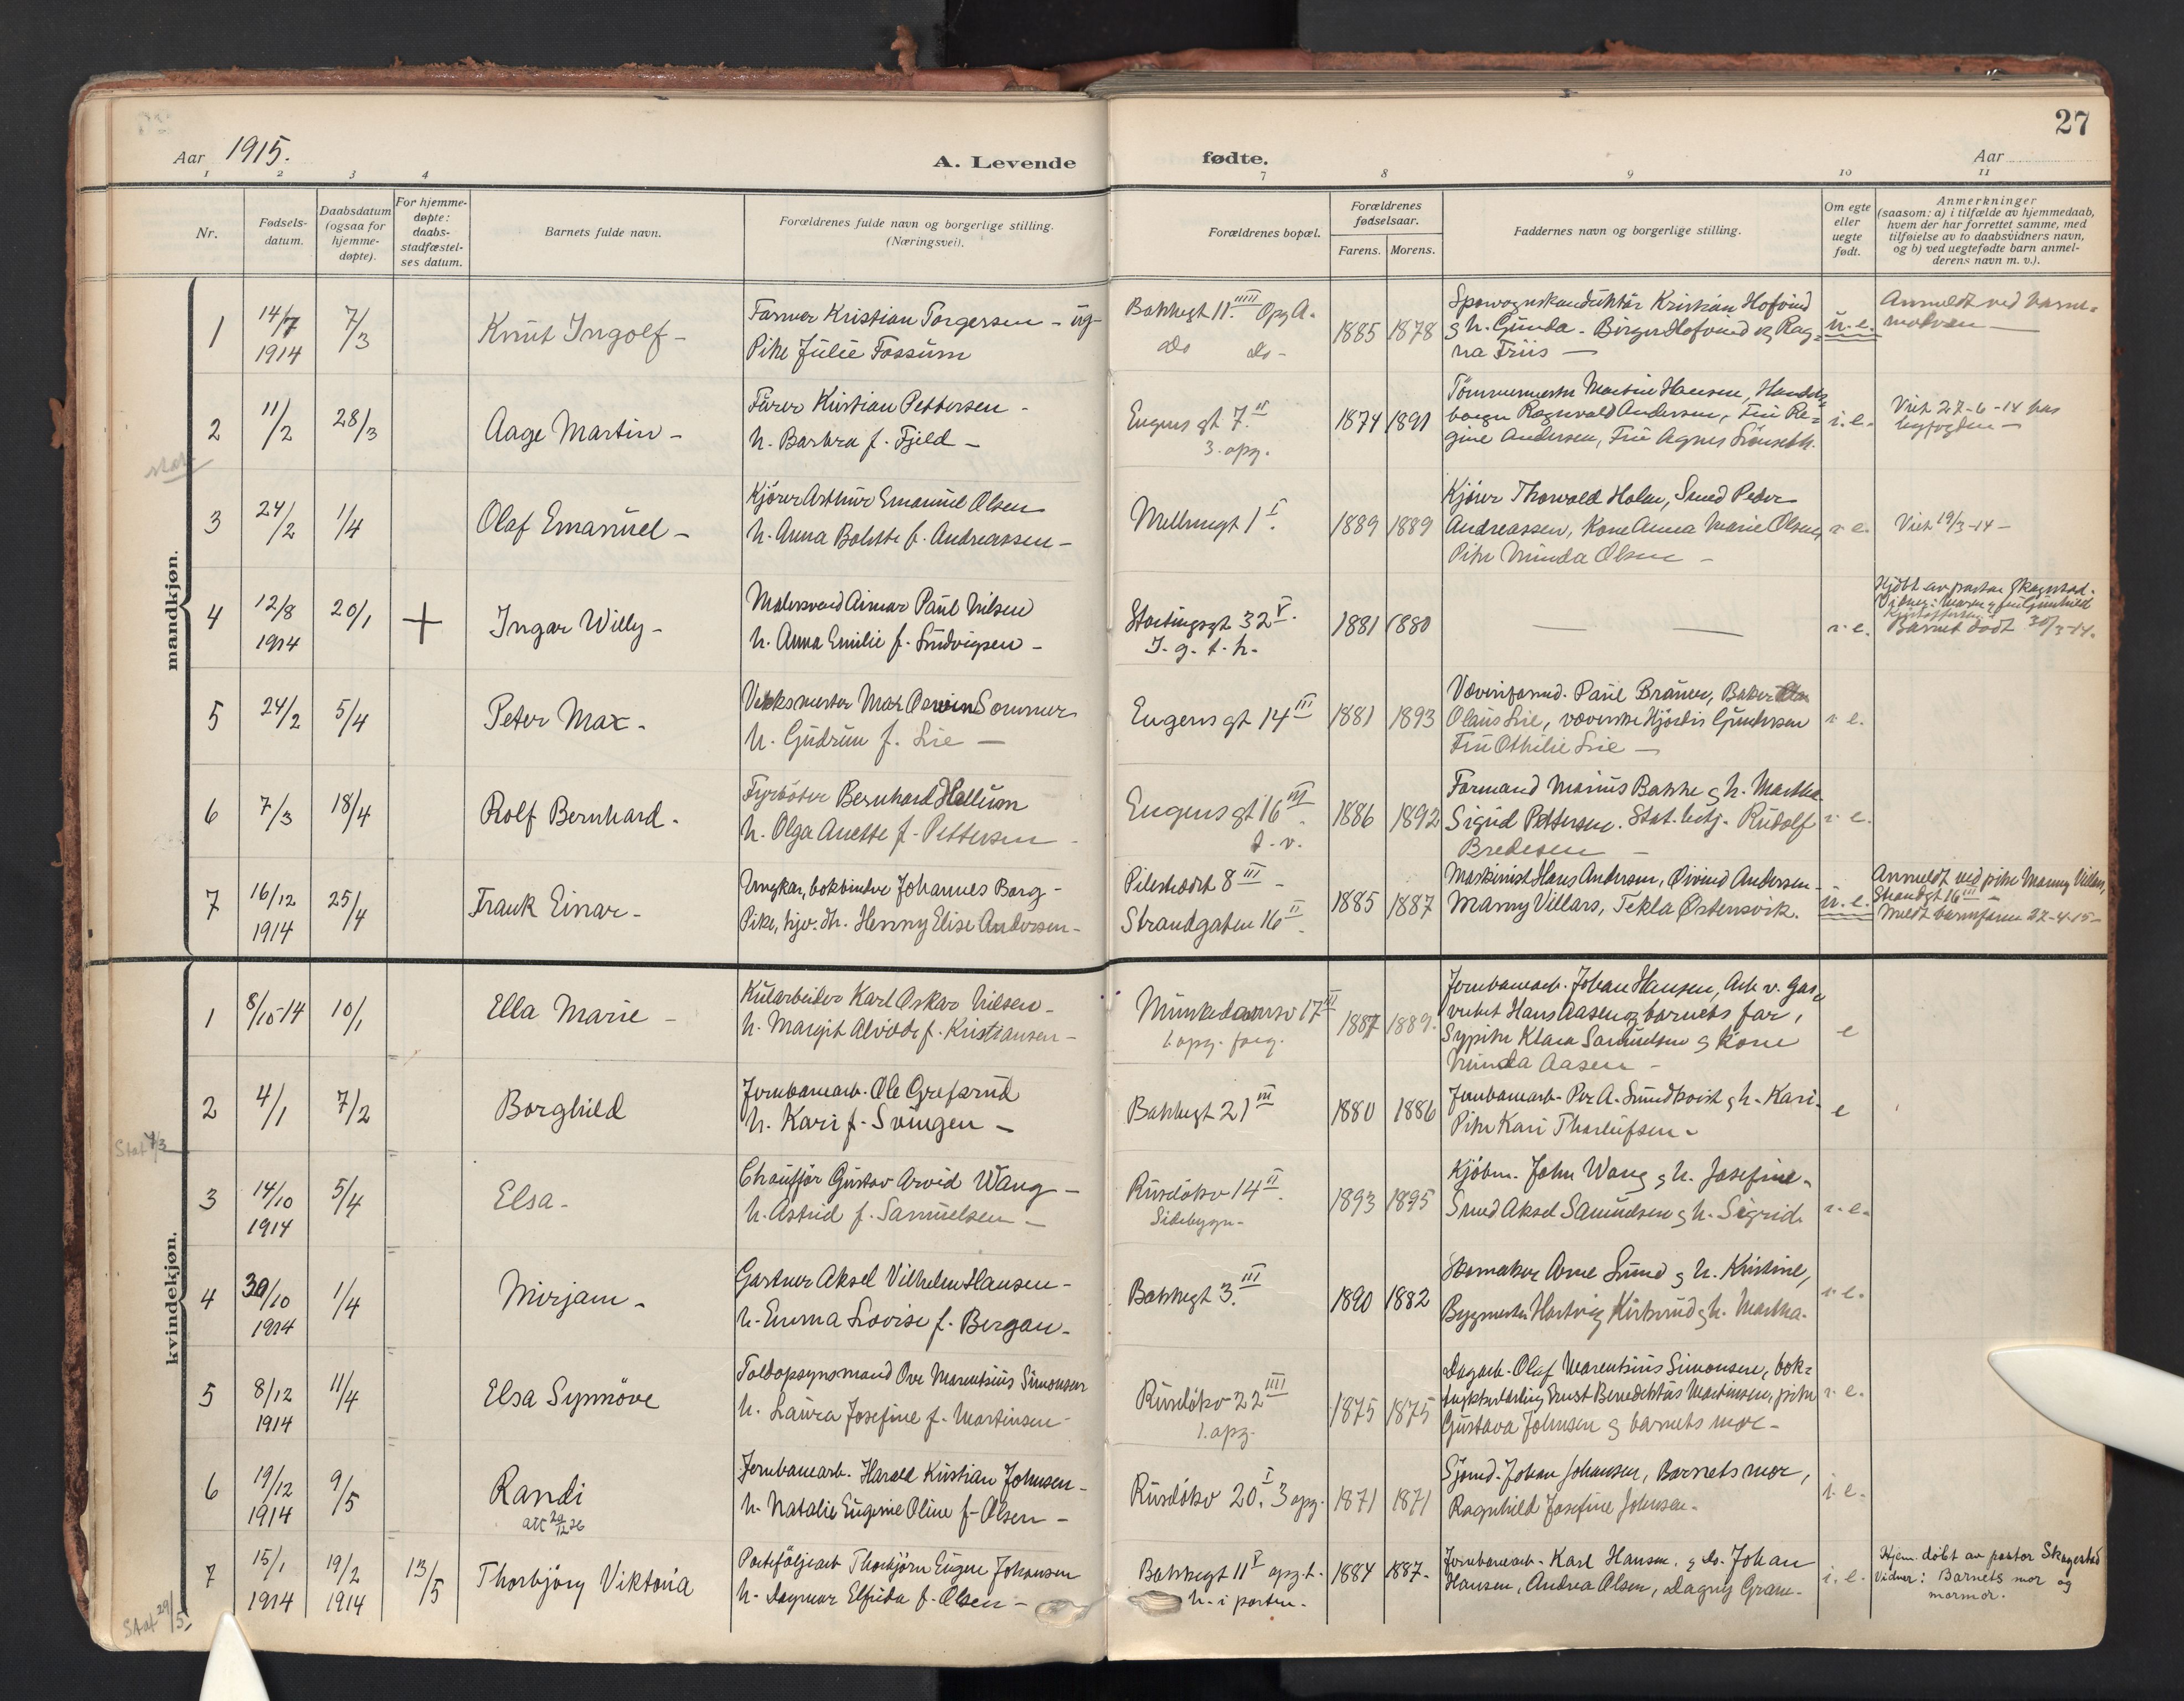 27
Aar 1915.
A. Levende
fødte.
Aar
1 2 3 4
7 8 9 10 11
Nr.
Fødsels-
datum.
Daabsdatum
(ogsaa for
hjemme-
døpte).
For hjemme-
døpte:
daabs-
stadfæstel-
ses datum.
Barnets fulde navn.
Forældrenes fulde navn og borgerlige stilling.
(Næringsvei).
Forældrenes bopæl.
Forældrenes
fødselsaar.
Farens. Morens.
Faddernes navn og borgerlige stilling.
Om egte
eller
uegte
født.
Anmerkninger
(saasom: a) i tilfælde av hjemmedaab,
hvem der har forrettet samme, med
tilføielse av to daabsvidners navn,
og b) ved uegtefødte barn anmel-
derens navn m. v.).
mandkjøn.
1
14/7
1914
7/3
Knut Ingolf -
Farmer Kristian Torgersen - ug-
Pike Julie Fossum
Bakkegt 11. IIII Opg A.
do do -
1885 1878
Sporvognskonduktør Kristian Hofvind
og h. Gunda. Birger Hofvind og Rag-
na Friis -
u. e.
Anmeldt ved barne-
moren -
2
11/2
28/3
Aage Martin -
Fører Kristian Pettersen -
h. Barbra f. Fjeld -
Eugens gt 7. II
3. opg.
1874 1891
Tømmermester Martin Hansen, Handels-
Ragnvald Andersen, Fru Re-
gine Andersen, Fru Agnes
i. e.
Viet 27-6-14 hos
byfogden -
3
24/2
1/4
Olaf Emanuel -
Kjører Arthur Emanuel Olsen
h. Anna Bolette f. Andreassen -
Mellemgt 1 I.
1889 1889
Kjører Thorvald Holm, Smed Peder
Andreassen, Kone Anna Marie Olsen,
Pike Minda Olsen -
i. e.
Viet 19/3-14 -
4
12/8
1914
20/1
+
Ingar Willy -
Malersvend Aimar Paul Nilsen
h. Anna Emilie f. Ludvigsen -
Stortingsgt 32 V.
I. g. t. h.
1881 1880
— —
i. e.
Hjdøbt av pastor Skagestad.
Barnet dødt
5
24/2
5/4
Peter Max -
Verksmester Max Oswin Sommer
h. Gudrun f. Lie -
Eugens gt 14 III
1881 1893
Væveriformd. Paul Bräuer, Baker
Olaus Lie, væverske Hjørdis Gundersen
Fru Othilie Lie -
i. e.
6
7/3
18/4
Rolf Bernhard -
Fyrbøter Bernhard Hellum
h. Olga Anette f. Pettersen -
Eugens gt 16 III.
t. v.
1886 1892
Formand Marius Bakke og h. Martha.
Sigrid Pettersen. Stat. betj. Rudolf
Bredesen -
i. e.
7
16/12
1914
25/4
Frank Einar -
Ungkar, bokbinder Johannes Borg -
Pike, hjv. dtr. Henny Elise Andersen -
Pilestrædet 8 III -
Strandgaten 16 II.
1885 1887
Maskinist Hans Andersen, Øivind Andersen
Manny Villars, Tekla Østensvik.
u. e.
Anmeldt ved pike Manny Villars,
Strandgt 16 III -
Meldt barnefaren 27-4-15 -
kvindekjøn.
1
8/10-14
10/1
Ella Marie -
Kularbeider Karl Oskar Nilsen -
h. Margit Alvide f. Kristiansen -
Munkedamsv 17 III
1. opg. forg.
1887 1889.
Jernbanearb. Johan Hansen, Arb. v. Gas-
verket Hans Aasen og barnets far,
Sypike Klara Samuelsen og kone
Minda Aasen -
e
2
4/1
7/2
Borghild
Jernbanearb. Ole Grefsrud
h. Kari f. Svingen -
Bakkegt 21 III
1880 1886
Jernbanearb. Per A. Sundkvist og h. Kari -
Pike Kari Thorleifsen -
e
Stat 4/3
3
14/10
1914
5/4
Elsa -
Chauffør Gustav Arvid Wang -
h. Astrid f. Samuelsen -
Ruseløkv 14 II.
Sidebygn -
1893 1895
Kjøbm. John Wang og h. Josefine -
Smed Aksel Samuelsen og h. Sigrid.
i. e.
4
30/10
1914
1/4
Mirjam -
Gartner Aksel Vilhelm Hansen -
h. Emma Lovise f. Bergan -
Bakkegt 3. III
1890 1882
Skomaker Arne Lund og h. Kristine,
Bygmester Hartvig Kirkerud og h. Martha -
i. e.
5
8/12
1914
11/4
Elsa Synnøve
Toldopsynsmand Ove Marentsius Simonsen
h. Laura Josefine f. Martinsen -
Ruseløkv 22 IIII
1. opg.
1875 1875
Dagarb. Olaf Marentsius Simonsen, bok-
trykkerlærling Ernst Benediktus Martinsen, pike
Gustava Johnsen og barnets mor -
i. e.
6
19/12
1914
9/5
Randi
att 29/12 26
Jernbanearb. Harald Kristian Johnsen -
h. Natalie Eugenie Oline f. Olsen -
Ruseløkv 20. I 3 opg.
1871 1871
Sjømd. Johan Johansen, Barnets mor,
Ragnhild Josefine Johnsen -
i. e.
7
15/1
1914
19/2
1914
13/5
Thorbjørg Viktoria
Porteføljearb Thorbjørn Eugen Johansen
h. Dagmar Elfrida f. Olsen -
Bakkegt 11 V opg. t.
h. i porten -
1884 1887 -
Jernbanearb. Karl Hansen, og do. Johan
Hansen, Andrea Olsen, Dagny Gram -
i. e.
Hjem. døbt av pastor Skagestad
Vidner: Barnets mor og
mormor.
Stat 29/5